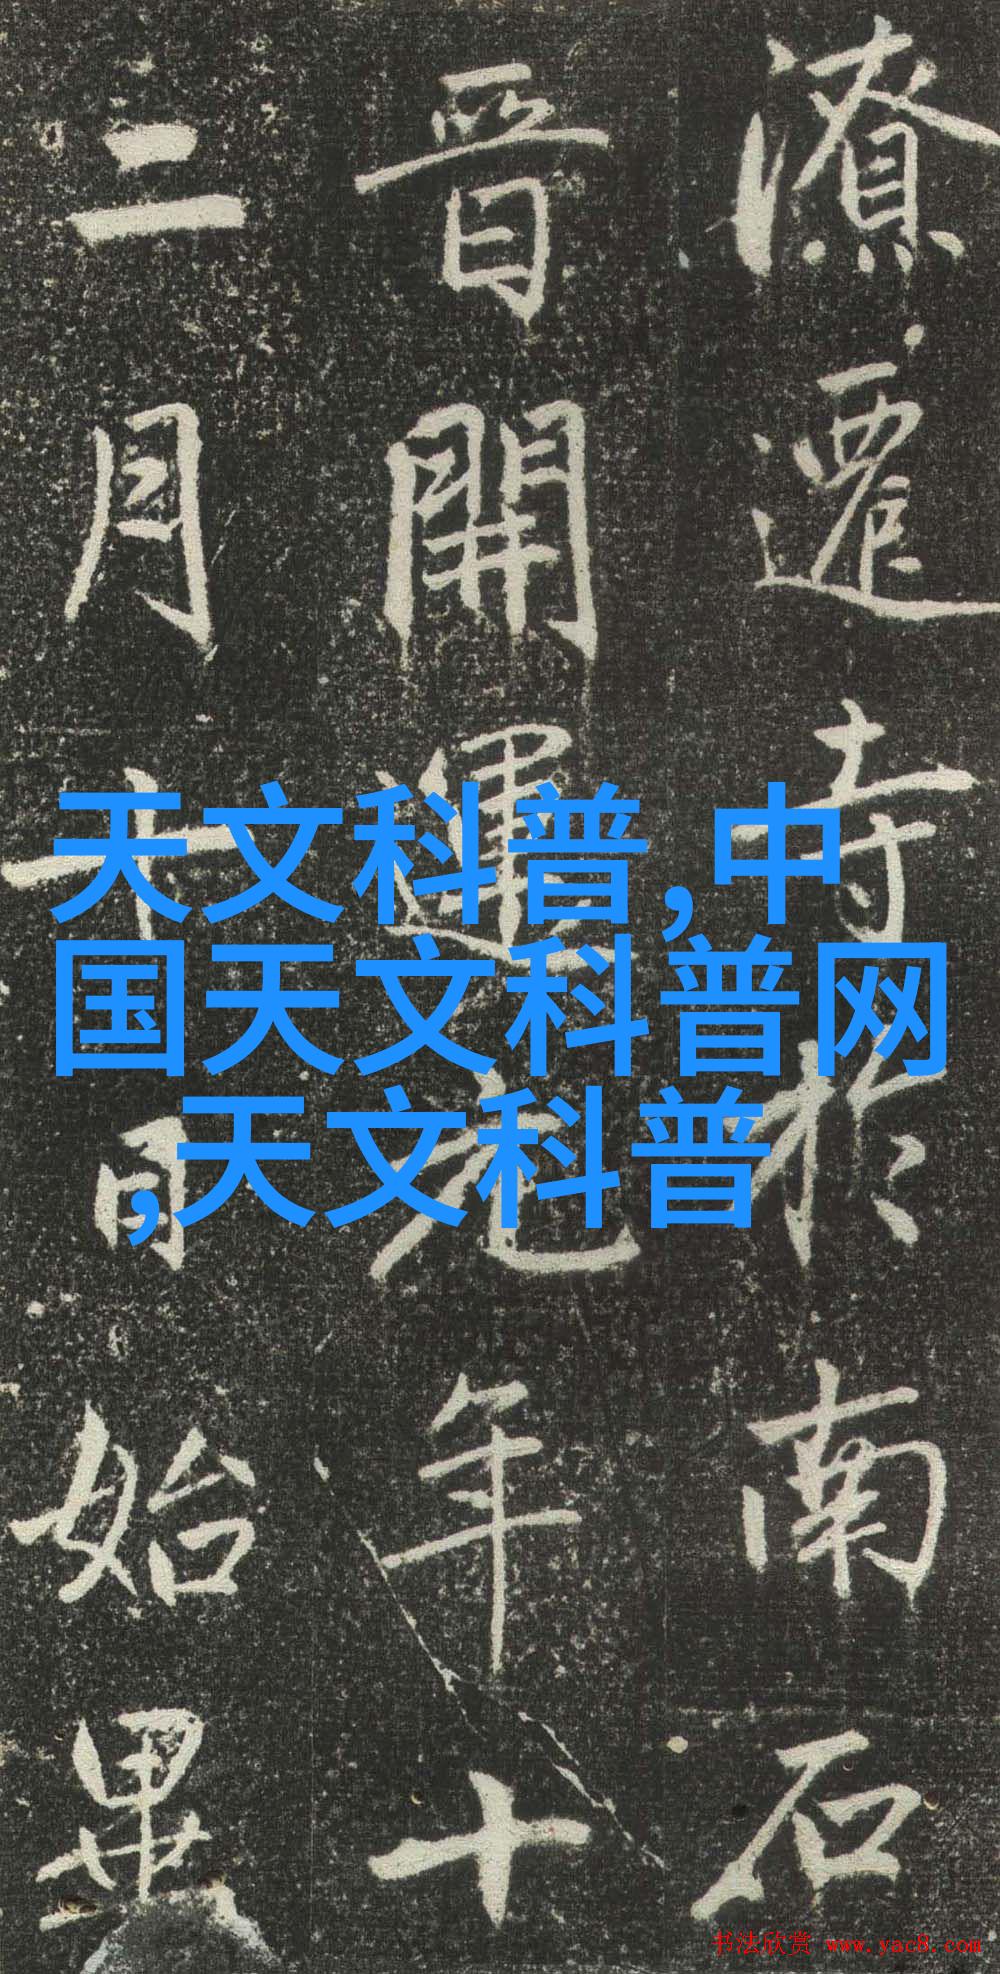 天文科普,中
国天文科普网
,天文科普
潦遷寺於南石
晋開運元年十
二月十日始畢
书法欣赏 www.yac8.com